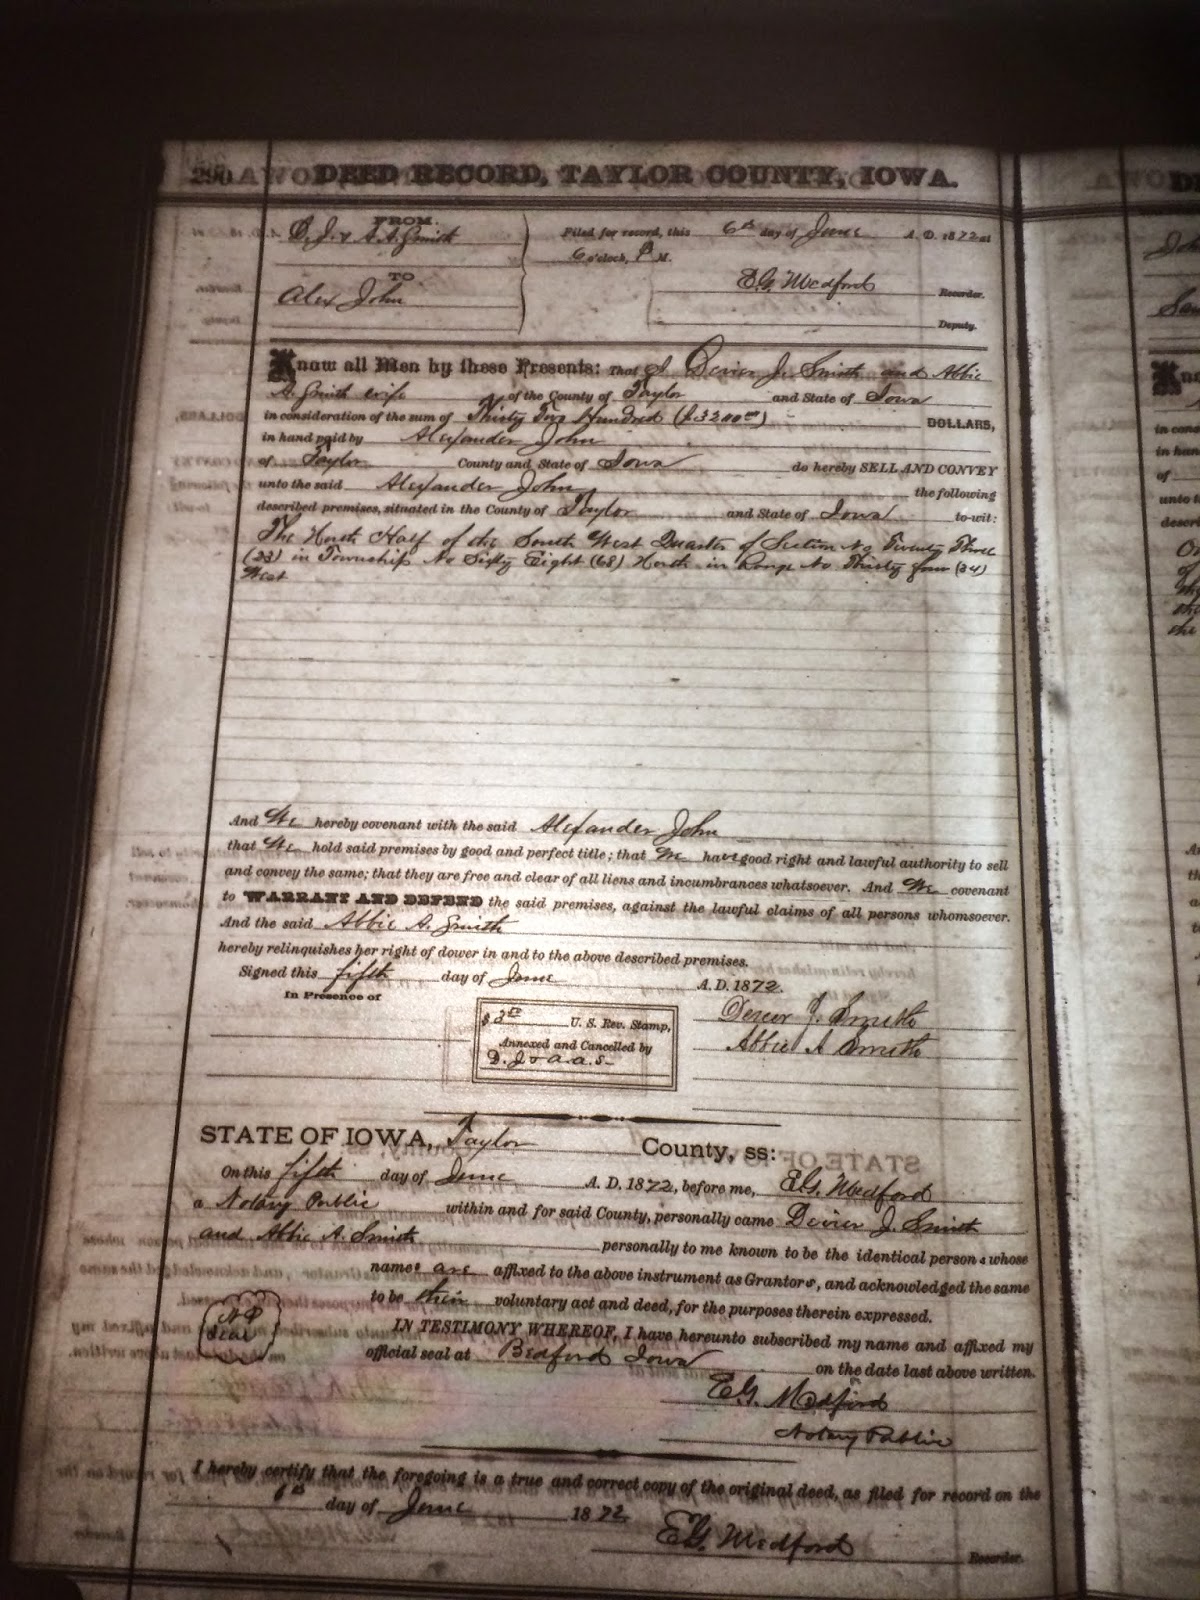 290
DEED RECORD, TAYLOR COUNTY, IOWA.
FROM
D. J. & A. A. Smith
TO
Alex John
Filed for record, this 6th day of June A. D. 1872 at
6 o'clock, P M.
E.G. Medford Recorder.
Deputy.
Know all Men by these Presents: That I Dexier J. Smith and Abbie
A. Smith wife of the County of Taylor and State of Iowa
in consideration of the sum of Thirty Two Hundred ($3200.00) DOLLARS,
in hand paid by Alexander John
of Taylor County and State of Iowa do hereby SELL AND CONVEY
unto the said Alexander John the following
described premises, situated in the County of Taylor and State of Iowa to-wit:
The North Half of the South West Quarter of Section No Twenty Three
(23) in Township No Sixty Eight (68) North in Range No Thirty four (34)
West
And We hereby covenant with the said Alexander John
that We hold said premises by good and perfect title; that We have good right and lawful authority to sell
and convey the same; that they are free and clear of all liens and incumbrances whatsoever. And We covenant
to WARRANT AND DEFEND the said premises, against the lawful claims of all persons whomsoever.
And the said Abbie A. Smith
hereby relinquishes her right of dower in and to the above described premises.
Signed this fifth day of June A. D. 1872.
In Presence of
J. Smith
Abbie A Smith
$3 U. S. Rev. Stamp,
Annexed and Cancelled by
D. J & A. A. S
STATE OF IOWA, Taylor County, ss:
On this fifth day of June A. D. 1872, before me, E.G. Medford
a Notary Public within and for said County, personally came J. Smith
and Abbie A. Smith personally to me known to be the identical persons whose
names are affixed to the above instrument as Grantors, and acknowledged the same
to be their voluntary act and deed, for the purposes therein expressed.
N P
Seal
IN TESTIMONY WHEREOF, I have hereunto subscribed my name and affixed my
official seal at Bedford Iowa on the date last above written.
E.G. Medford
Notary Public
I hereby certify that the foregoing is a true and correct copy of the original deed, as filed for record on the
6th day of June 1872
E.G. Medford Recorder.